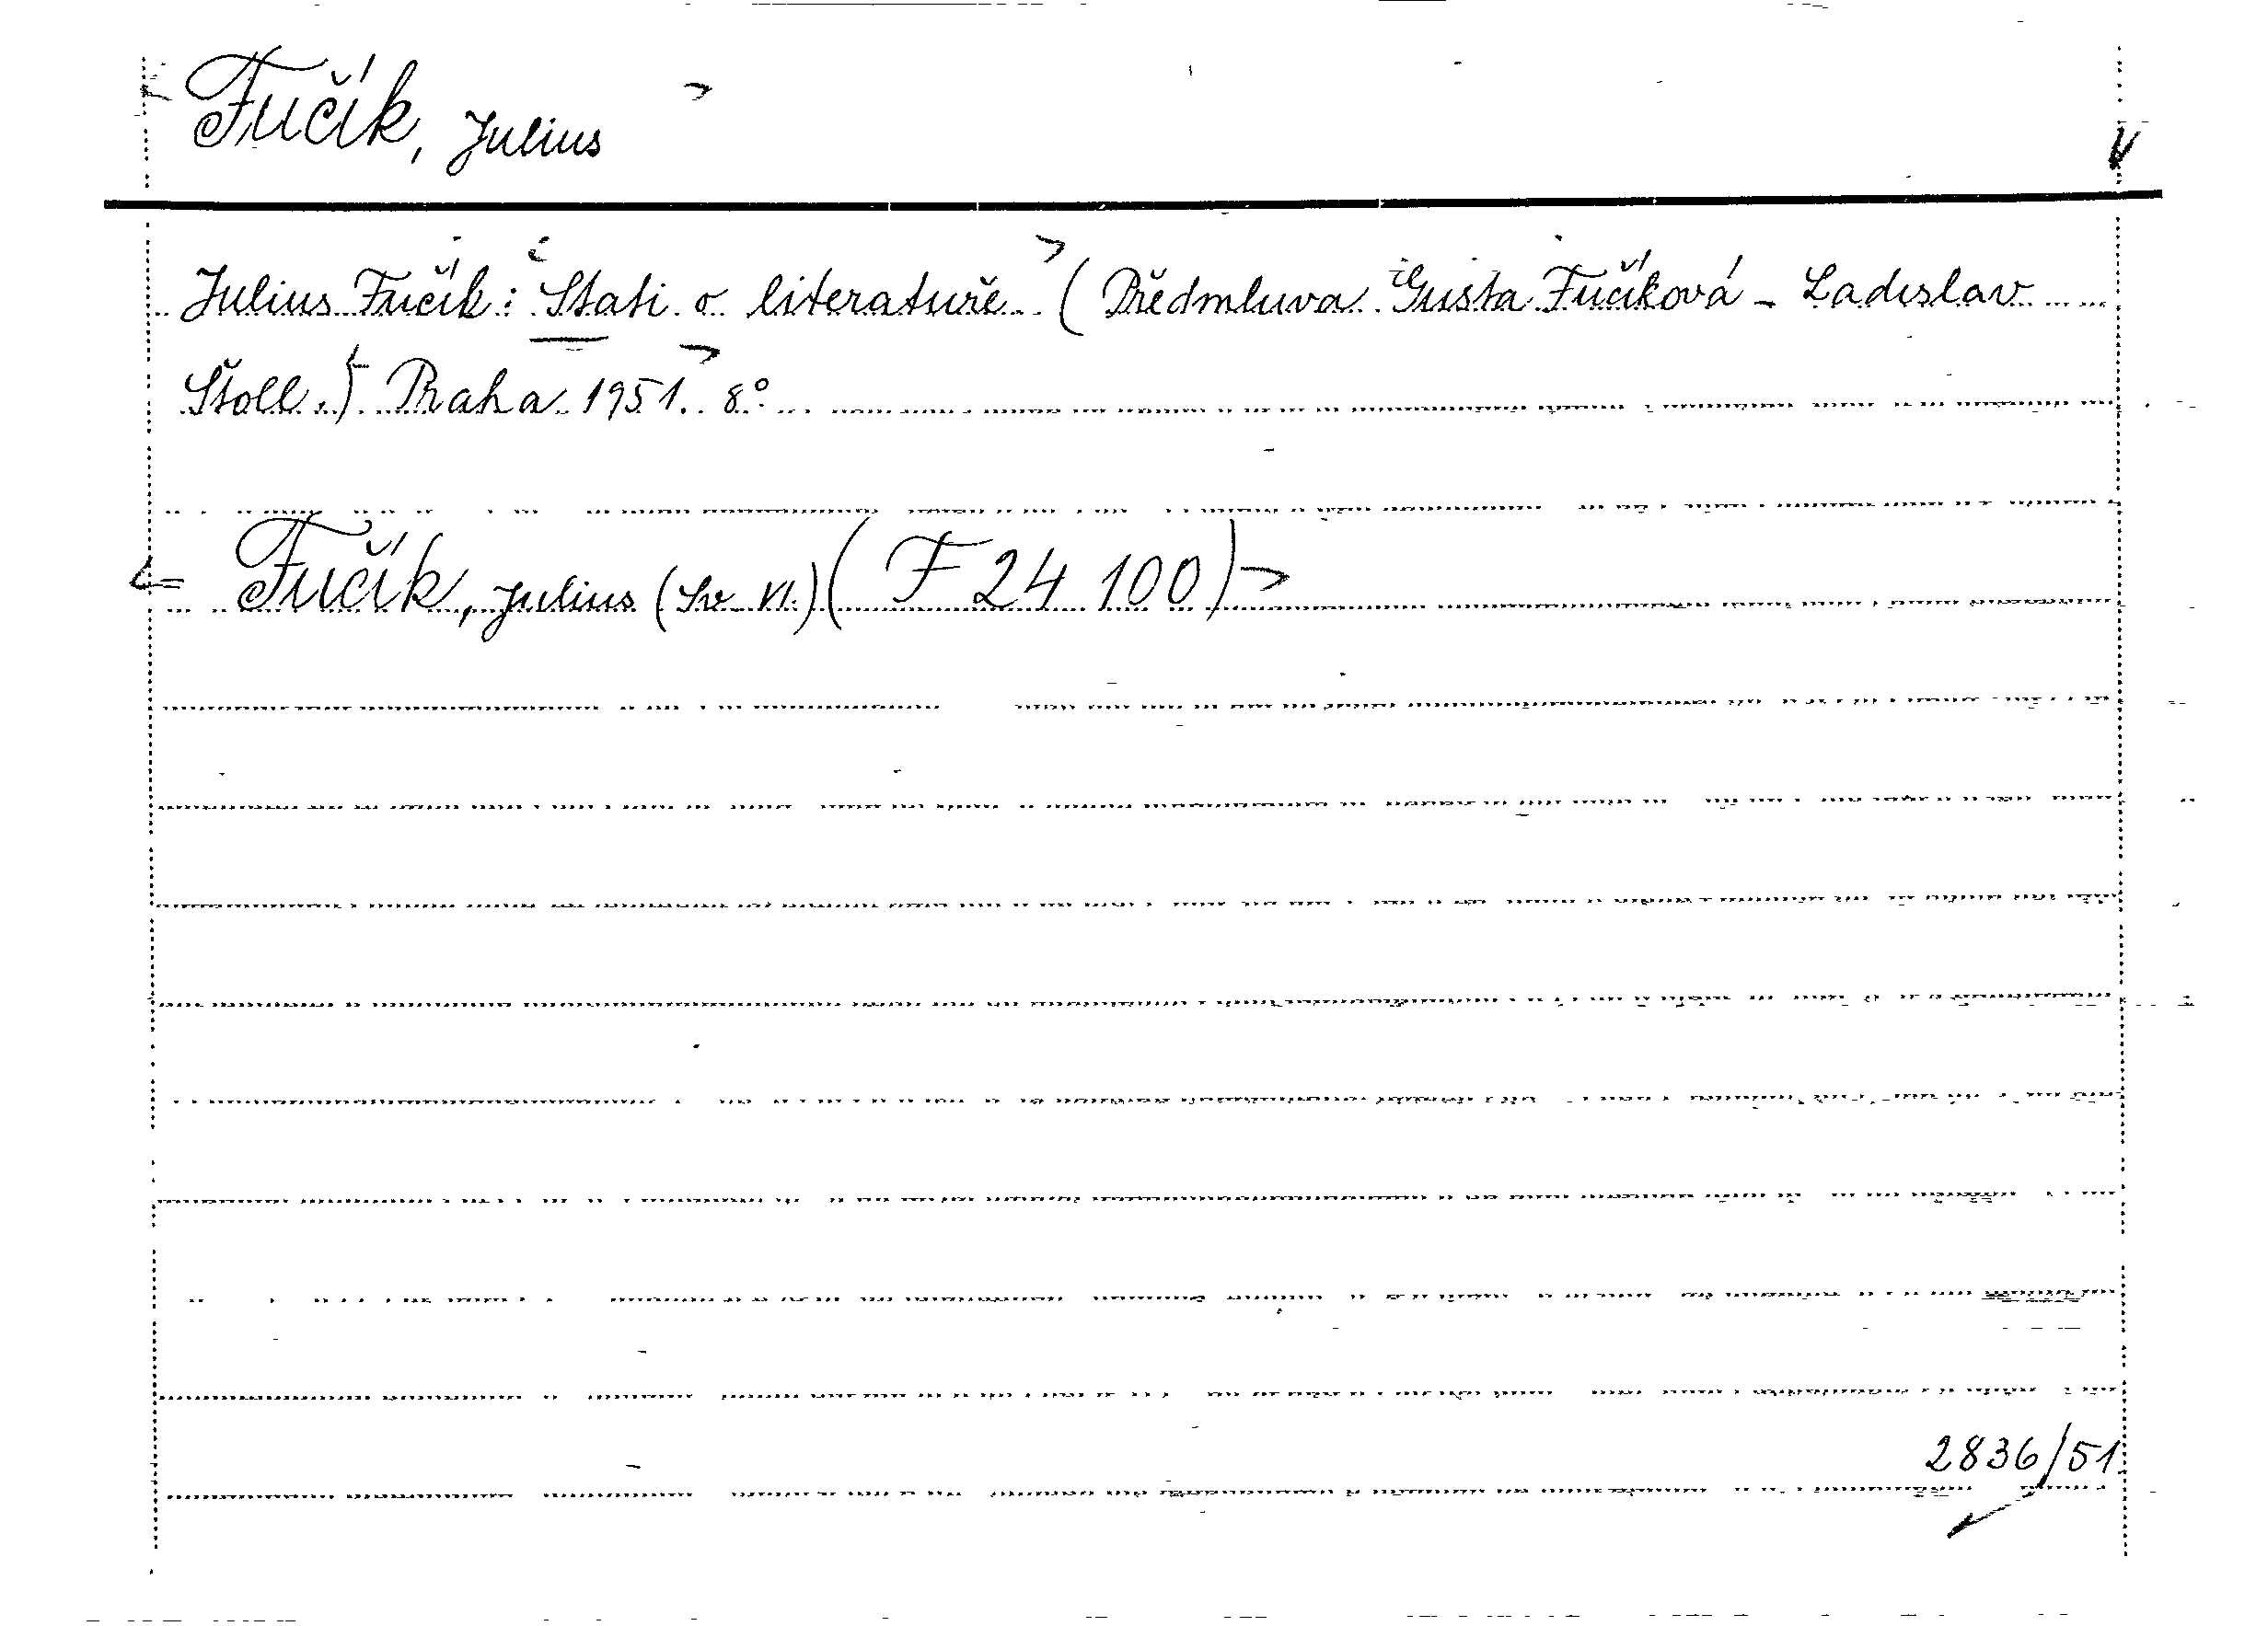 Fučík, Julius
Julius Fučík: Stati o literatuře (Předmluva Gusta Fučíková - Ladislav
Štoll.) Praha 1951. 8°
Fučík, Julius (Sv. VI.) (F 24 100)
2836/51